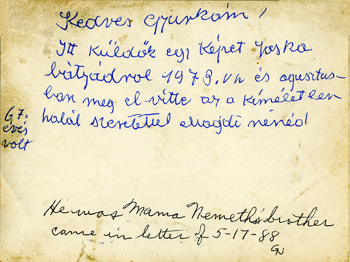 Kedves Gyurkám!
Itt küldök egy képet Joska
bátyádrol 1979. VII és agusztus-
ban meg el-vitte az a kiméletlen
halál szeretettel Magdi nénéd
67.
évés
volt
He was Mama Nemeth's brother
came in letter of 5-17-88
GN